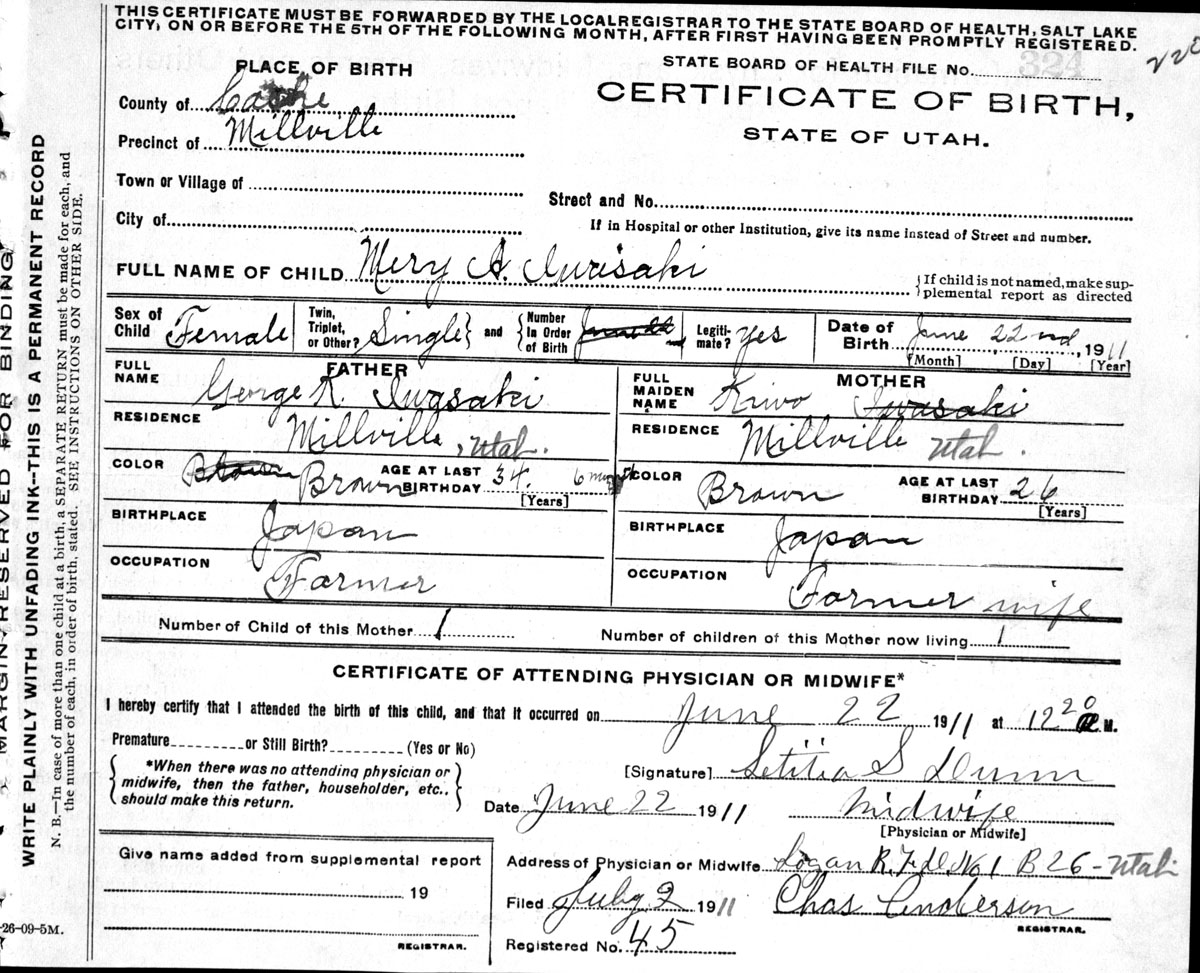 THIS CERTIFICATE MUST BE FORWARDED BY THE LOCAL REGISTRAR TO THE STATE BOARD OF HEALTH, SALT LAKE
CITY, ON OR BEFORE THE 5TH OF THE FOLLOWING MONTH, AFTER FIRST HAVING BEEN PROMPTLY REGISTERED.
PLACE OF BIRTH
STATE BOARD OF HEALTH FILE No. 324
County of Cache
CERTIFICATE OF BIRTH,
STATE OF UTAH.
Precinct of Millville
Town or Village of
Street and No.
City of
If in Hospital or other Institution, give its name instead of Street and number.
FULL NAME OF CHILD Mery A. Iwasaki
{If child is not named, make sup-
plemental report as directed
Sex of Child Female
Twin, Triplet, or Other? Single} and {Number in Order of Birth
Legiti-mate? Yes
Date of Birth June 22nd, 1911
[Month] [Day] [Year]
FATHER
FULL NAME George K. Iwasaki
RESIDENCE Millville, Utah.
COLOR Brown AGE AT LAST BIRTHDAY 34. 6
[Years]
BIRTHPLACE Japan
OCCUPATION Farmer
MOTHER
FULL MAIDEN NAME Kiwo Iwasaki
RESIDENCE Millville Utah.
COLOR Brown AGE AT LAST BIRTHDAY 26
[Years]
BIRTHPLACE Japan
OCCUPATION Farmer wife
Number of Child of this Mother 1 Number of children of this Mother now living 1
CERTIFICATE OF ATTENDING PHYSICIAN OR MIDWIFE*
I hereby certify that I attended the birth of this child, and that it occurred on June 22 1911 at 12 20 M.
Premature or Still Birth? (Yes or No)
{*When there was no attending physician or
midwife, then the father, householder, etc.,
should make this return.}
[Signature] Letitia S Dunn
Date June 22 1911 Midwife
[Physician or Midwife]
Give name added from supplemental report
19
REGISTRAR.
Address of Physician or Midwife Logan R.F.D. No 1 B 26 - Utah
Filed July 2 1911 Chas Anderson
REGISTRAR.
Registered No. 45
-26-09-5M.
MARGIN RESERVED FOR BINDING
WRITE PLAINLY WITH UNFADING INK--THIS IS A PERMANENT RECORD
N. B.—In case of more than one child at a birth, a SEPARATE RETURN must be made for each, and
the number of each, in order of birth, stated. SEE INSTRUCTIONS ON OTHER SIDE.